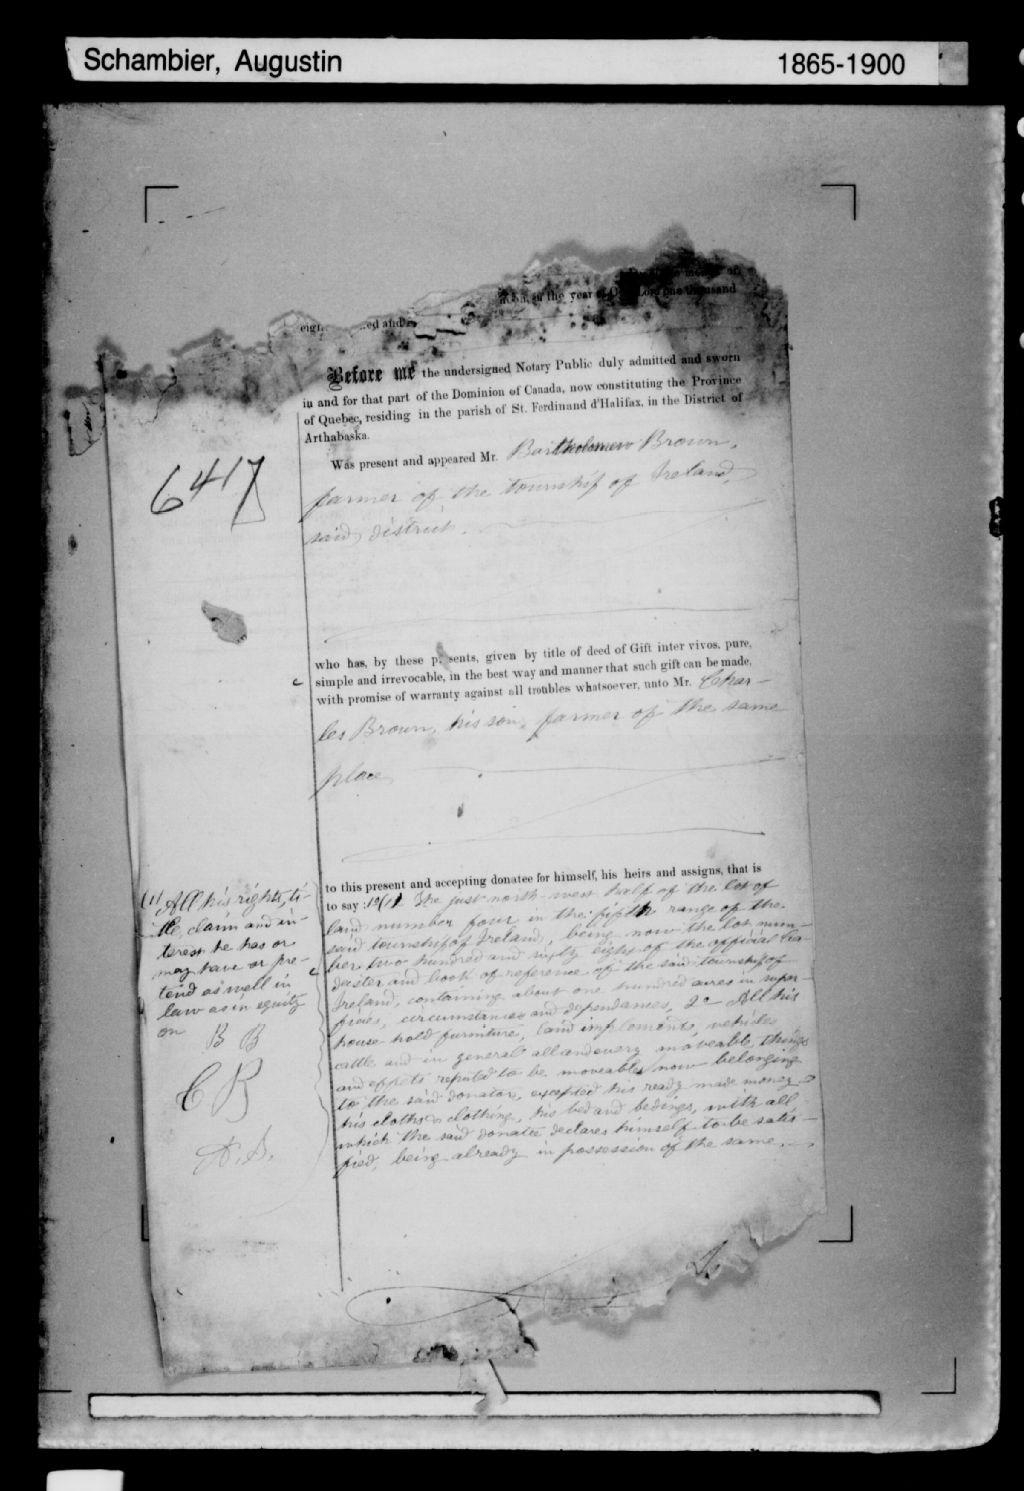 Schambier, Augustin 1865-1900
in the year of Our Lord one thousand
ed and
Before me the undersigned Notary Public duly admitted and sworn
in and for that part of the Dominion of Canada, now constituting the Province
of Quebec, residing in the parish of St. Ferdinand d'Halifax, in the District of
Arthabaska.
Was present and appeared Mr. Bartholomew Brown,
farmer of the township of Ireland,
said district.
6417
who has, by these presents, given by title of deed of Gift inter vivos, pure,
simple and irrevocable, in the best way and manner that such gift can be made,
with promise of warranty against all troubles whatsoever, unto Mr. Char-
les Brown, his son, farmer of the same
place
to this present and accepting donatee for himself, his heirs and assigns, that is
to say: 1o (1) The just north-west half of the lot of
land number four in the fifth range of the
said township of Ireland, being now the lot num-
ber two hundred and sixty eight of the official Ca-
daster and book of reference of the said township of
Ireland, containing about one hundred acres in super-
ficies, circumstances and dependances, 2o All his
house hold furniture, land implements, vehicles,
cattle and in general all and every moveable things
and effets reputed to be moveables now belonging
to the said donator, excepted his ready made money
his cloths & clothing, his bed and bedings, with all
which the said donatee declares himself to be satis-
fied, being already in possession of the same.
(1) All his rights, ti-
tle, claim and in-
terest he has or
may have or pre-
tend as well in
law as in equity
on
B B
C B
A. S.